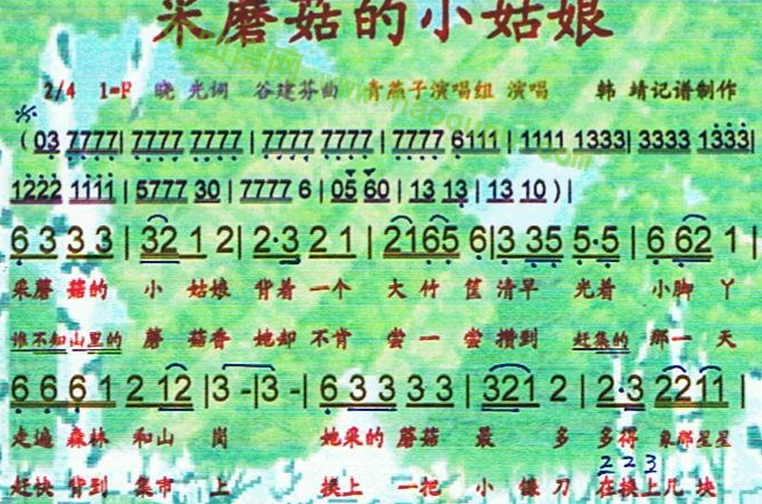 采蘑菇的小姑娘
2/4 1=F 晓光词 谷建芬曲 青燕子演唱组 演唱 韩靖记谱制作
( 03 7777 | 7777 7777 | 7777 7777 | 7777 6111 | 1111 1333 | 3333 1333 |
1222 1111 | 5777 30 | 7777 6 | 05 60 | 13 13 | 13 10 ) |
6 3 3 3 | 32 1 2 | 2·3 2 1 | 2165 6 | 3 35 5·5 | 6 62 1 |
采蘑 菇的 小 姑娘 背着 一个 大 竹 筐 清早 光着 小脚 丫
谁不知山里的 蘑 菇香 她却 不肯 尝 一 尝 攒到 赶集的 那一 天
6 6 6 1 2 12 | 3 - | 3 - | 6 3 3 3 3 | 321 2 | 2·3 2211 |
走遍 森林 和山 岗 她采的 蘑菇 最 多 多得 象那星星
2 2 3
赶快 背到 集市 上 换上 一把 小 镰 刀 在换上几 块